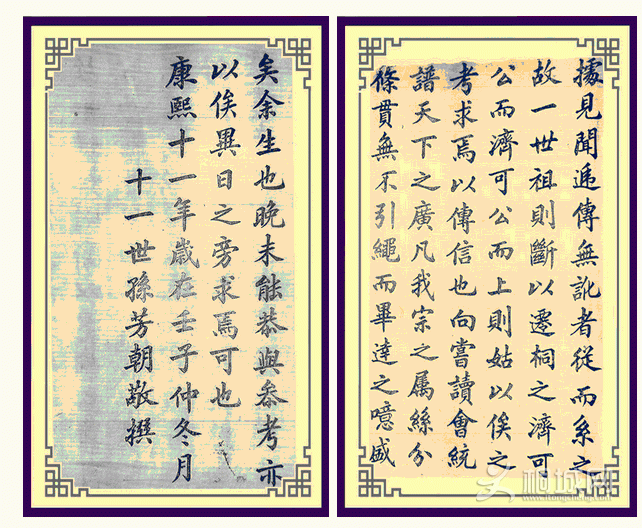 據見聞逓傳無訛者從而系之
故一世祖則斷以遷桐之濟可
公而濟可公而上則姑以俟之
考求焉以傳信也向嘗讀會統
譜天下之廣凡我宗之属絲分
條貫無不引繩而畢達之噫盛
矣余生也晚未能恭與叅考亦
以俟異日之旁求焉可也
康熙十一年歲在壬子仲冬月
十一世孫芳朝敬撰
桐城网